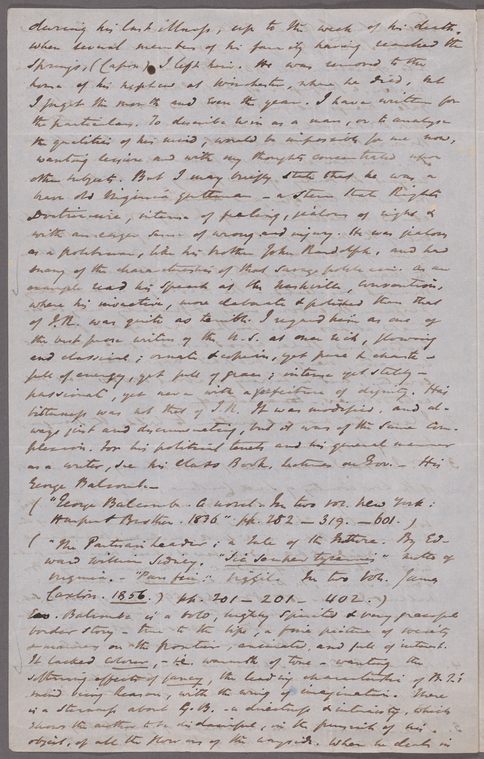 during his last illness, up to the week of his death,
when several members of his family having reached the
Springs, (Capon) I left him. He was removed to the
house of his nephew at Winchester, where he died, but
I forget the month and even the year. I have written for
the particulars. To describe him as a man, or to analyze
the qualities of his mind, would be impossible for me now,
wanting leisure and with my thoughts concentrated upon
other subjects. But I may briefly state that he was a
true old Virginia gentleman - a stern State Rights
Doctrinaire, intense of feeling, jealous of right, &
with an eager sense of wrong and injury. He was zealous
as a politician, like his brother John Randolph, and had
many of the characteristics of that savage politician. As an
example read his speech at the Nashville Convention,
where his invective, more elaborate & polished than that
of J.R. was quite as terrible. I regard him as one of
the best prose writers of the U.S. at once rich, flowing
and classical; ornate & copious, yet pure & chaste -
full of energy, yet full of grace; intense yet stately -
passionate, yet never with a forfeiture of dignity. His
bitterness was not that of J.R. It was modified, and al-
ways just and discriminating, but it was of the same com-
plexion. For his political tenets and his general manner
as a writer, see his Class Book, Lectures on Gov. - His
George Balcombe
( "George Balcombe. A novel. In two vol. New York:
Harper & Brother. 1836" pp. 282 - 319. - 601. )
( "The Partisan Leader; a Tale of the Future. By Ed-
ward William Sidney. "Sic semper tyrannis" Motto of
Virginia. - "Pars fui." Virgil. In two Vol. James
Caxton. 1856.) pp. 201 - 201 - 402.)
Geo. Balcombe is a bold, highly spirited & very graceful
border story - true to the life, a fine picture of society
& manners on the frontier, animated, and full of interest.
It lacked colour, - i.e. warmth of tone - wanting the
softening effects of fancy, the leading characteristic of B. T.'s
mind being Reason, with the wing of imagination. There
is a sternness about G.B. a directness & intensity, which
shows the author to be disdainful, in the pursuit of his
object, of all the flowers of the wayside. When he deals in